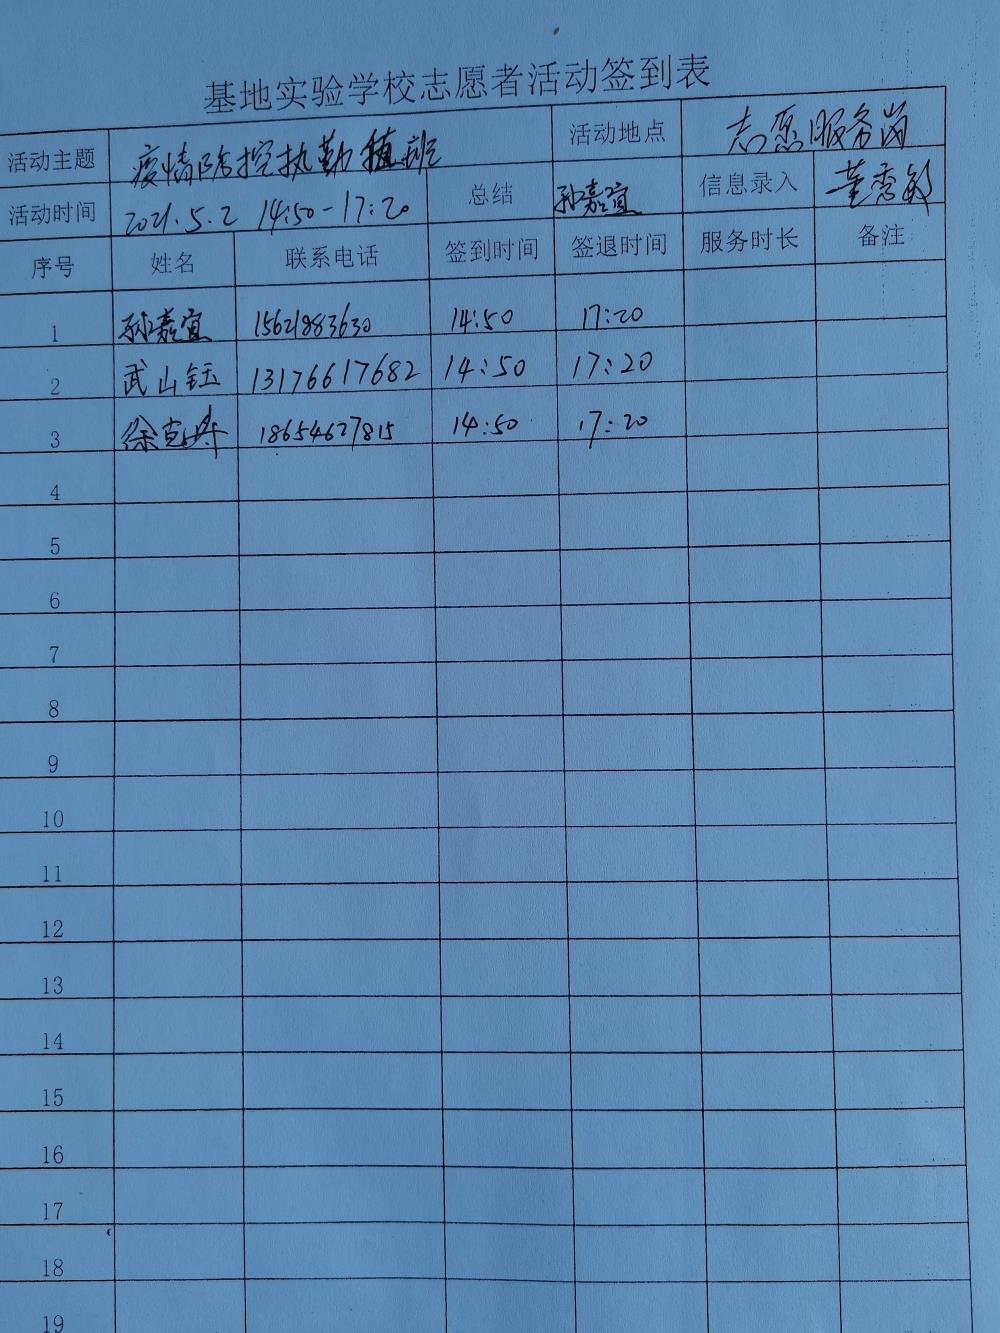 基地实验学校志愿者活动签到表
活动主题 疫情防控执勤值班 活动地点 志愿服务岗
活动时间 2021.5.2 14:50-17:20 总结 孙嘉宜 信息录入 董秀敏
序号 姓名 联系电话 签到时间 签退时间 服务时长 备注
1 孙嘉宜 15621883630 14:50 17:20
2 武山钰 13176617682 14:50 17:20
3 徐 18654627815 14:50 17:20
4
5
6
7
8
9
10
11
12
13
14
15
16
17
18
19